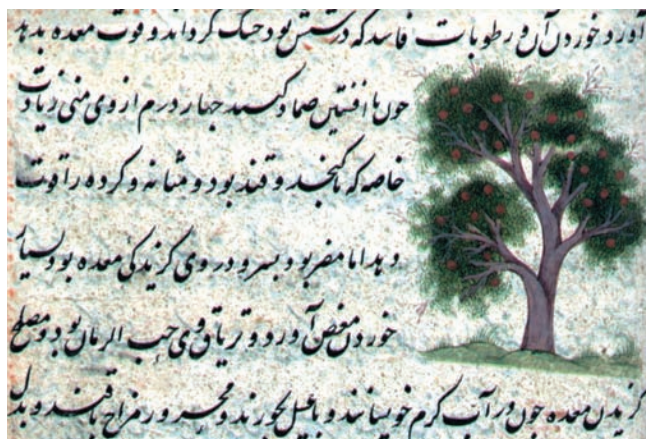 آورد خوردن آن و رطوبات فاسد که در شش بود خشک گرداند و قوت معده بدهد
چون با افستین ضماد کنند چهار درم از وی منی زیادت
خاصه که با کنجد و قند بود و مثانه و کرده را قوت
و بد اما مضر بود بسر و در وی گزیدگی معده بود بسیار
خوردن مغص آورد و تریاق وی حب الرمان بود و مصلح
گزیدن معده چون در آب گرم خوسانند و با عسل بخورند و محرور مزاج با قند و بدل